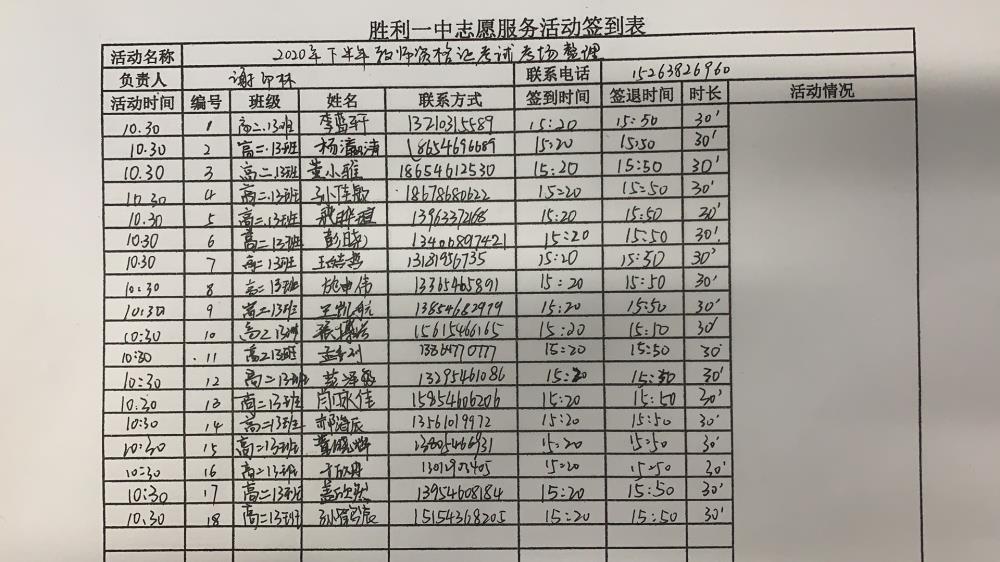 胜利一中志愿服务活动签到表
活动名称 2020年下半年教师资格证考试考场整理
负责人 谢印林 联系电话 15263826960
活动时间 编号 班级 姓名 联系方式 签到时间 签退时间 时长 活动情况
10.30 1 高二.13班 李蓝轩 13210315589 15:20 15:50 30'
10.30 2 高二.13班 杨瀛清 18654696689 15:20 15:50 30'
10.30 3 高二.13班 董小雅 18654612530 15:20 15:50 30'
10.30 4 高二.13班 孙佳敏 18678680622 15:20 15:50 30'
10.30 5 高二.13班 13963372168 15:20 15:50 30'
10.30 6 高二13班 彭晓 13406897421 15:20 15:50 30'
10.30 7 高二13班 13181956735 15:20 15:50 30'
10:30 8 高二13班 13365465891 15:20 15:50 30'
10:30 9 高二13班 王凯航 13854682979 15:20 15:50 30'
10:30 10 高二13班 张博浩 15615466165 15:20 15:50 30'
10:30 11 高二13班 15:20 15:50 30'
10:30 12 高二13班 13295461086 15:20 15:50 30'
10:30 13 高二13班 闫咏佳 15954606206 15:20 15:50 30'
10:30 14 高二13班 郝浩辰 13561019972 15:20 15:50 30'
10:30 15 高二13班 13805466931 15:20 15:50 30'
10:30 16 高二13班 15:20 15:50 30'
10:30 17 高二13班 盖欣然 13954608184 15:20 15:50 30'
10.30 18 高二13班 15154368205 15:20 15:50 30'